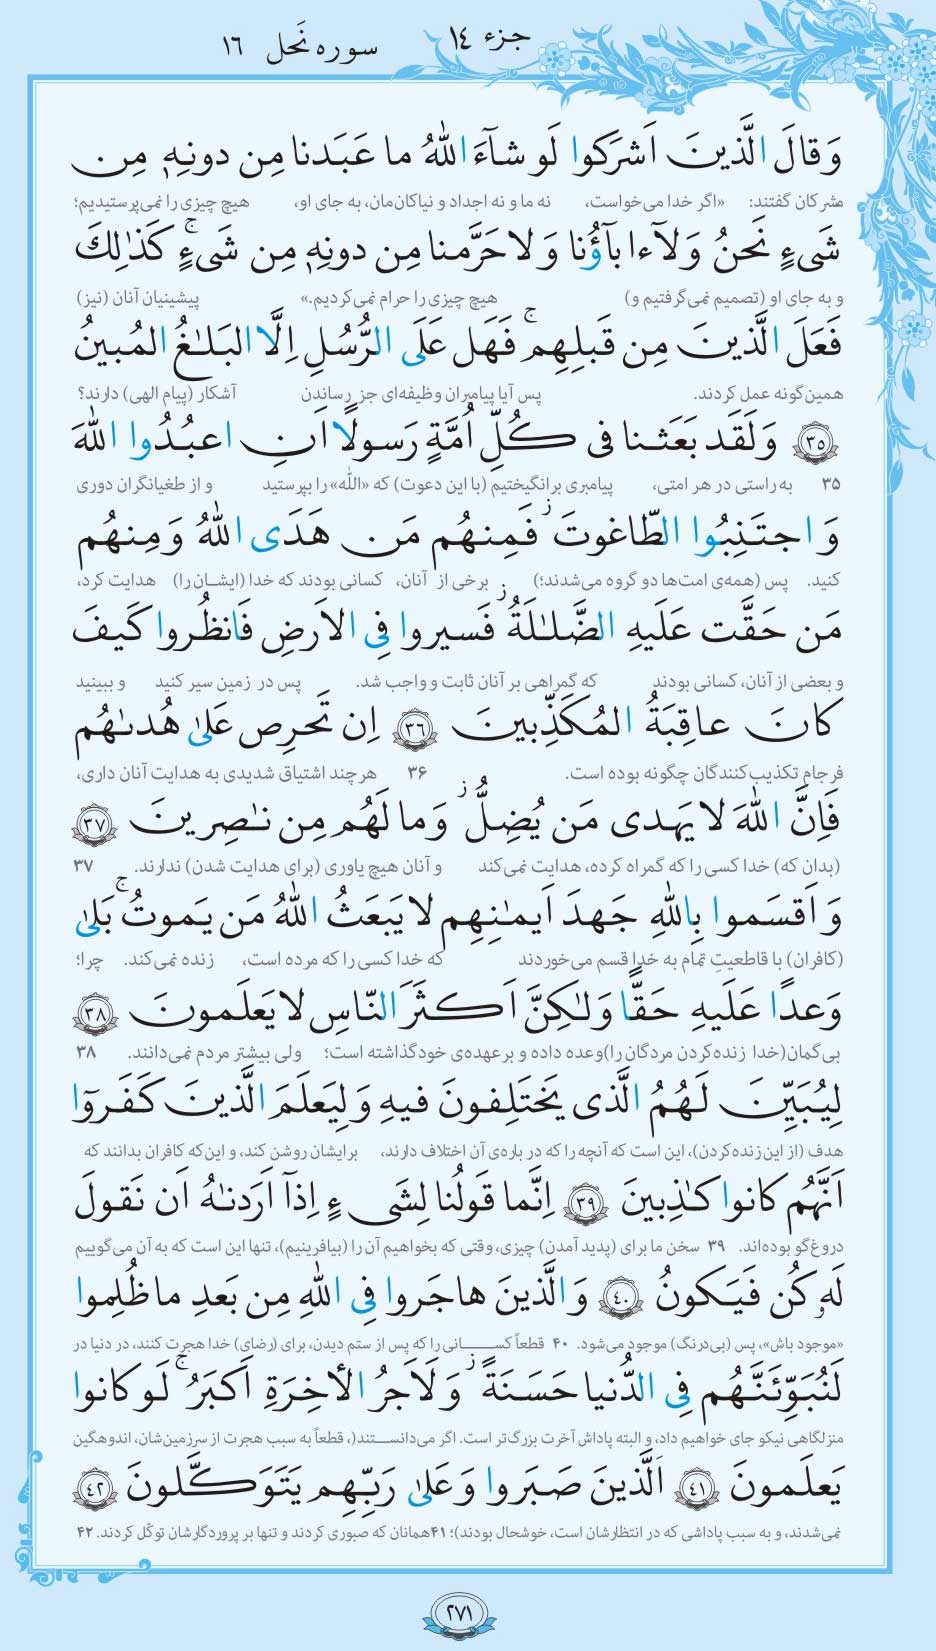 جزء ۱۴
سوره نَحل ۱۶
وَ قالَ الَّذینَ اَشرَکوا لَو شآءَ اللّٰهُ ما عَبَدنا مِن دونِهٖ مِن
مشرکان گفتند: «اگر خدا می‌خواست، نه ما و نه اجداد و نیاکان‌مان، به جای او، هیچ چیزی را نمی‌پرستیدیم؛
شَیءٍ نَحنُ وَ لآءابآؤُنا وَ لا حَرَّمنا مِن دونِهٖ مِن شَیءٍۚ کَذٰلِكَ
و به جای او (تصمیم نمی‌گرفتیم و) هیچ چیزی را حرام نمی‌کردیم.» پیشینیان آنان (نیز)
فَعَلَ الَّذینَ مِن قَبلِهِمۚ فَهَل عَلَی الرُّسُلِ اِلَّا البَلٰـغُ المُبینُ
همین‌گونه عمل کردند. پس آیا پیامبران وظیفه‌ای جز رساندن آشکار (پیام الهی) دارند؟
﴿۳۵﴾ وَ لَقَد بَعَثنا فی کُلِّ اُمَّةٍ رَسولًا اَنِ اعبُدُوا اللّٰهَ
۳۵ به راستی در هر امتی، پیامبری برانگیختیم (با این دعوت) که «اللّٰه» را بپرستید و از طغیانگران دوری
وَ اجتَنِبُوا الطّاغوتَۖ فَمِنهُم مَن هَدَی اللّٰهُ وَ مِنهُم
کنید. پس (همه‌ی امت‌ها دو گروه می‌شدند؛) برخی از آنان، کسانی بودند که خدا (ایشـان را) هدایت کرد،
مَن حَقَّت عَلَیهِ الضَّلـٰلَةُۚ فَسیروا فِی الاَرضِ فَانظُروا کَیفَ
و بعضی از آنان، کسانی بودند که گمراهی بر آنان ثابت و واجب شد. پس در زمین سیر کنید و ببینید
کانَ عاقِبَةُ المُکَذِّبینَ ﴿۳۶﴾ اِن تَحرِص عَلیٰ هُدىٰهُم
فرجام تکذیب‌کنندگان چگونه بوده است. ۳۶ هرچند اشتیاق شدیدی به هدایت آنان داری،
فَاِنَّ اللّٰهَ لا یَهدی مَن یُضِلُّۖ وَ ما لَهُم مِن نٰـصِرینَ ﴿۳۷﴾
(بدان که) خدا کسی را که گمراه کرده، هدایت نمی‌کند و آنان هیچ یاوری (برای هدایت شدن) ندارند. ۳۷
وَ اَقسَموا بِاللّٰهِ جَهدَ اَیمٰـنِهِم لا یَبعَثُ اللّٰهُ مَن یَموتُۚ بَلیٰ
(کافران) با قاطعیتِ تمام به خدا قسم می‌خوردند که خدا کسی را که مرده است، زنده نمی‌کند. چرا؛
وَعدًا عَلَیهِ حَقًّا وَلـٰکِنَّ اَکثَرَ النّاسِ لا یَعلَمونَ ﴿۳۸﴾
بی‌گمان(خدا زنده‌کردن مردگان را)وعده داده و برعهده‌ی خودگذاشته است؛ ولی بیشتر مردم نمی‌دانند. ۳۸
لِیُبَیِّنَ لَهُمُ الَّذی یَختَلِفونَ فیهِ وَ لِیَعلَمَ الَّذینَ کَفَروٓا
هدف (از این زنده‌کردن)، این است که آنچه را که در باره‌ی آن اختلاف دارند، برایشان روشن کند، و این‌که کافران بدانند که
اَنَّهُم کانوا کـٰذِبینَ ﴿۳۹﴾ اِنَّما قَولُنا لِشَیءٍ اِذآ اَرَدنـٰهُ اَن نَقولَ
دروغ‌گو بوده‌اند. ۳۹ سخن ما برای (پدید آمدن) چیزی، وقتی که بخواهیم آن را (بیافرینیم)، تنها این است که به آن می‌گوییم
لَهٗ کُن فَیَکونُ ﴿۴۰﴾ وَ الَّذینَ هاجَروا فِی اللّٰهِ مِن بَعدِ ما ظُلِموا
«موجود باش»، پس (بی‌درنگ) موجود می‌شود. ۴۰ قطعاً کسـانی را که پس از ستم دیدن، برای (رضای) خدا هجرت کنند، در دنیا در
لَنُبَوِّئَنَّهُم فِی الدُّنیا حَسَنَةًۖ وَ لَاَجرُ الأخِرَةِ اَکبَرُۚ لَو کانوا
منزلگاهی نیکو جای خواهیم داد، و البته پاداش آخرت بزرگ‌تر است. اگر می‌دانسـتند(، قطعاً به سبب هجرت از سرزمین‌شان، اندوهگین
یَعلَمونَ ﴿۴۱﴾ اَلَّذینَ صَبَروا وَ عَلیٰ رَبِّهِم یَتَوَکَّلونَ ﴿۴۲﴾
نمی‌شدند، و به سبب پاداشی که در انتظارشان است، خوشحال بودند)؛ ۴۱همانان که صبوری کردند و تنها بر پروردگارشان توکّل کردند. ۴۲
۲۷۱